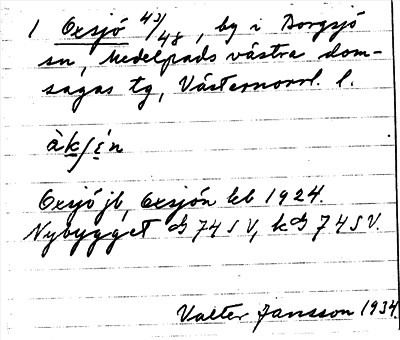 1 Oxsjö 43/48, by i Borgsjö
sn, Medelpads västra dom-
sagas tg, Västernorrl. l.
àkʃén
Oxsjö jb, Oxsjön kb 1924.
Nybygget G 74 SV, kG 74 SV.
Valter Jansson 1934.